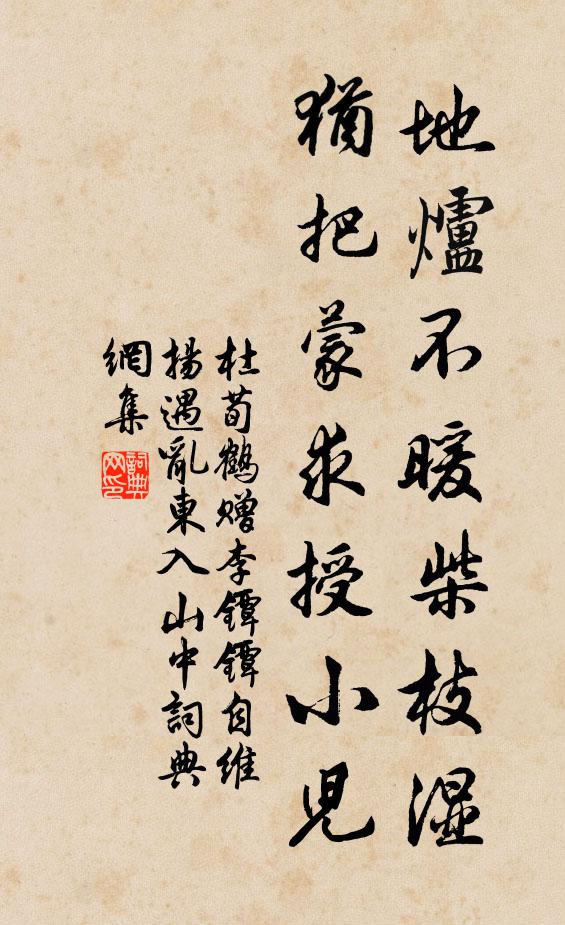 地爐不暖柴枝濕
猶把蒙求授小兒
杜荀鶴贈李鐔鐔自維
揚遇亂東入山中詞典
網集
詞典
网印